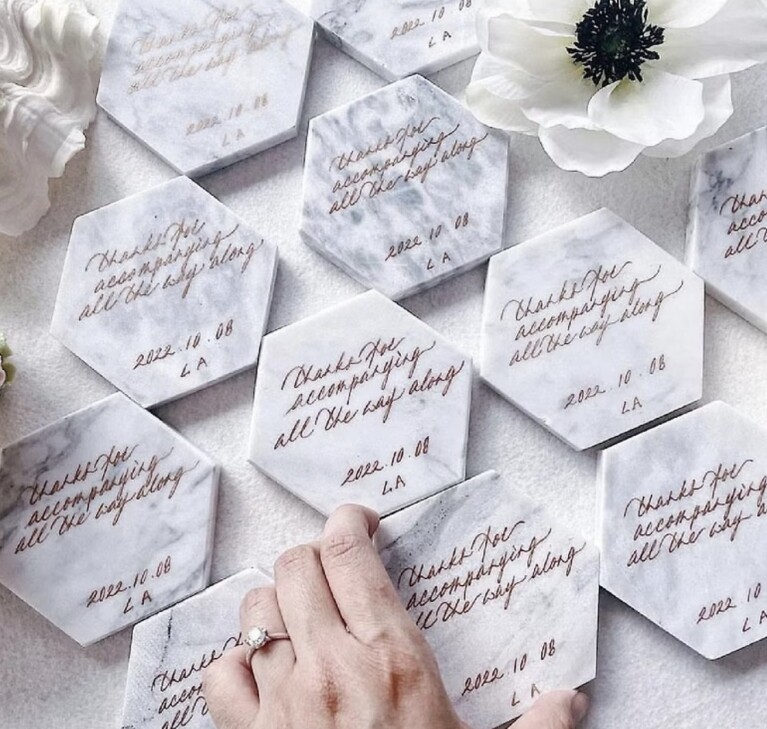 thanks for
accompanying
all the way along
2022.10.08
LA
2022.10.08
LA
thanks for
accompanying
all the way along
2022.10.08
LA
thanks for
accompanying
all the way along
2022.10.08
LA
thanks for
accompanying
all the way along
2022.10.08
LA
thanks for
accompanying
all the way along
2022.10.08
LA
thanks for
accompanying
all the way along
2022.10.08
LA
thanks for
accompanying
all the way along
2022.10
LA
thanks for
accompanying
all the way along
2022.10.08
LA
thanks
all